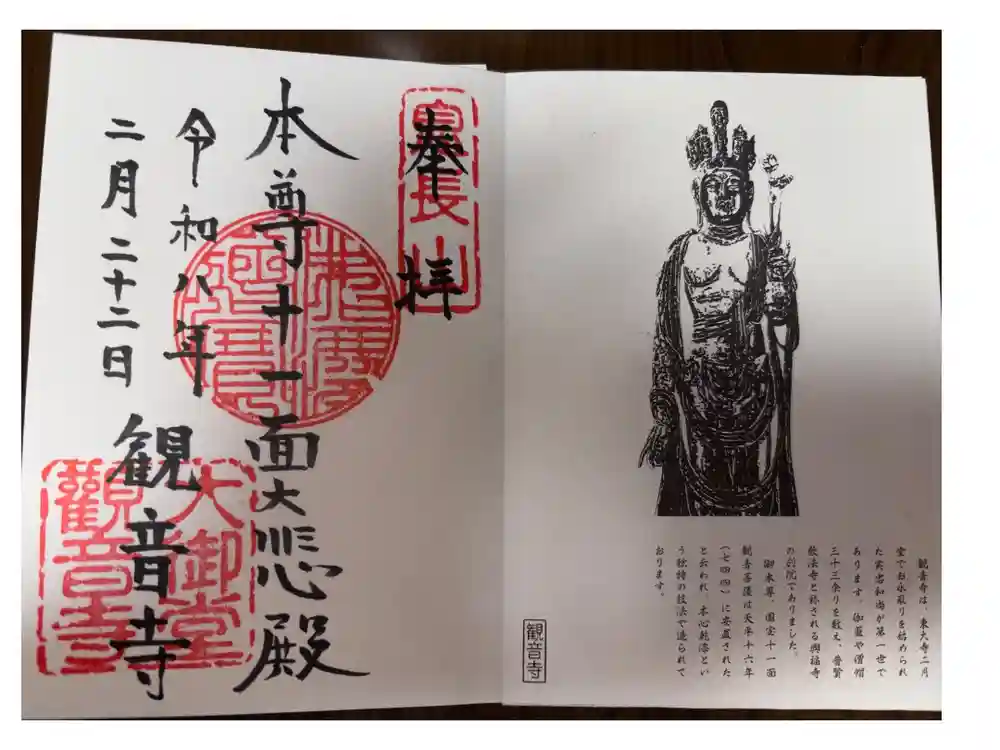 奉拝
息長山
本尊十一面大悲殿
令和八年
二月二十二日
観音寺
大御堂
觀音寺
観音寺は、東大寺二月
堂でお水取りを始められ
た実忠和尚が第一世で
あります。伽藍や僧帽
三十三余りを数え、普賢
教法寺と称される興福寺
の別院でありました。
御本尊、国宝十一面
観音菩薩は天平十六年
(七四四)に安置された
と云われ、木心乾漆とい
う独特の技法で造られて
おります。
観音寺